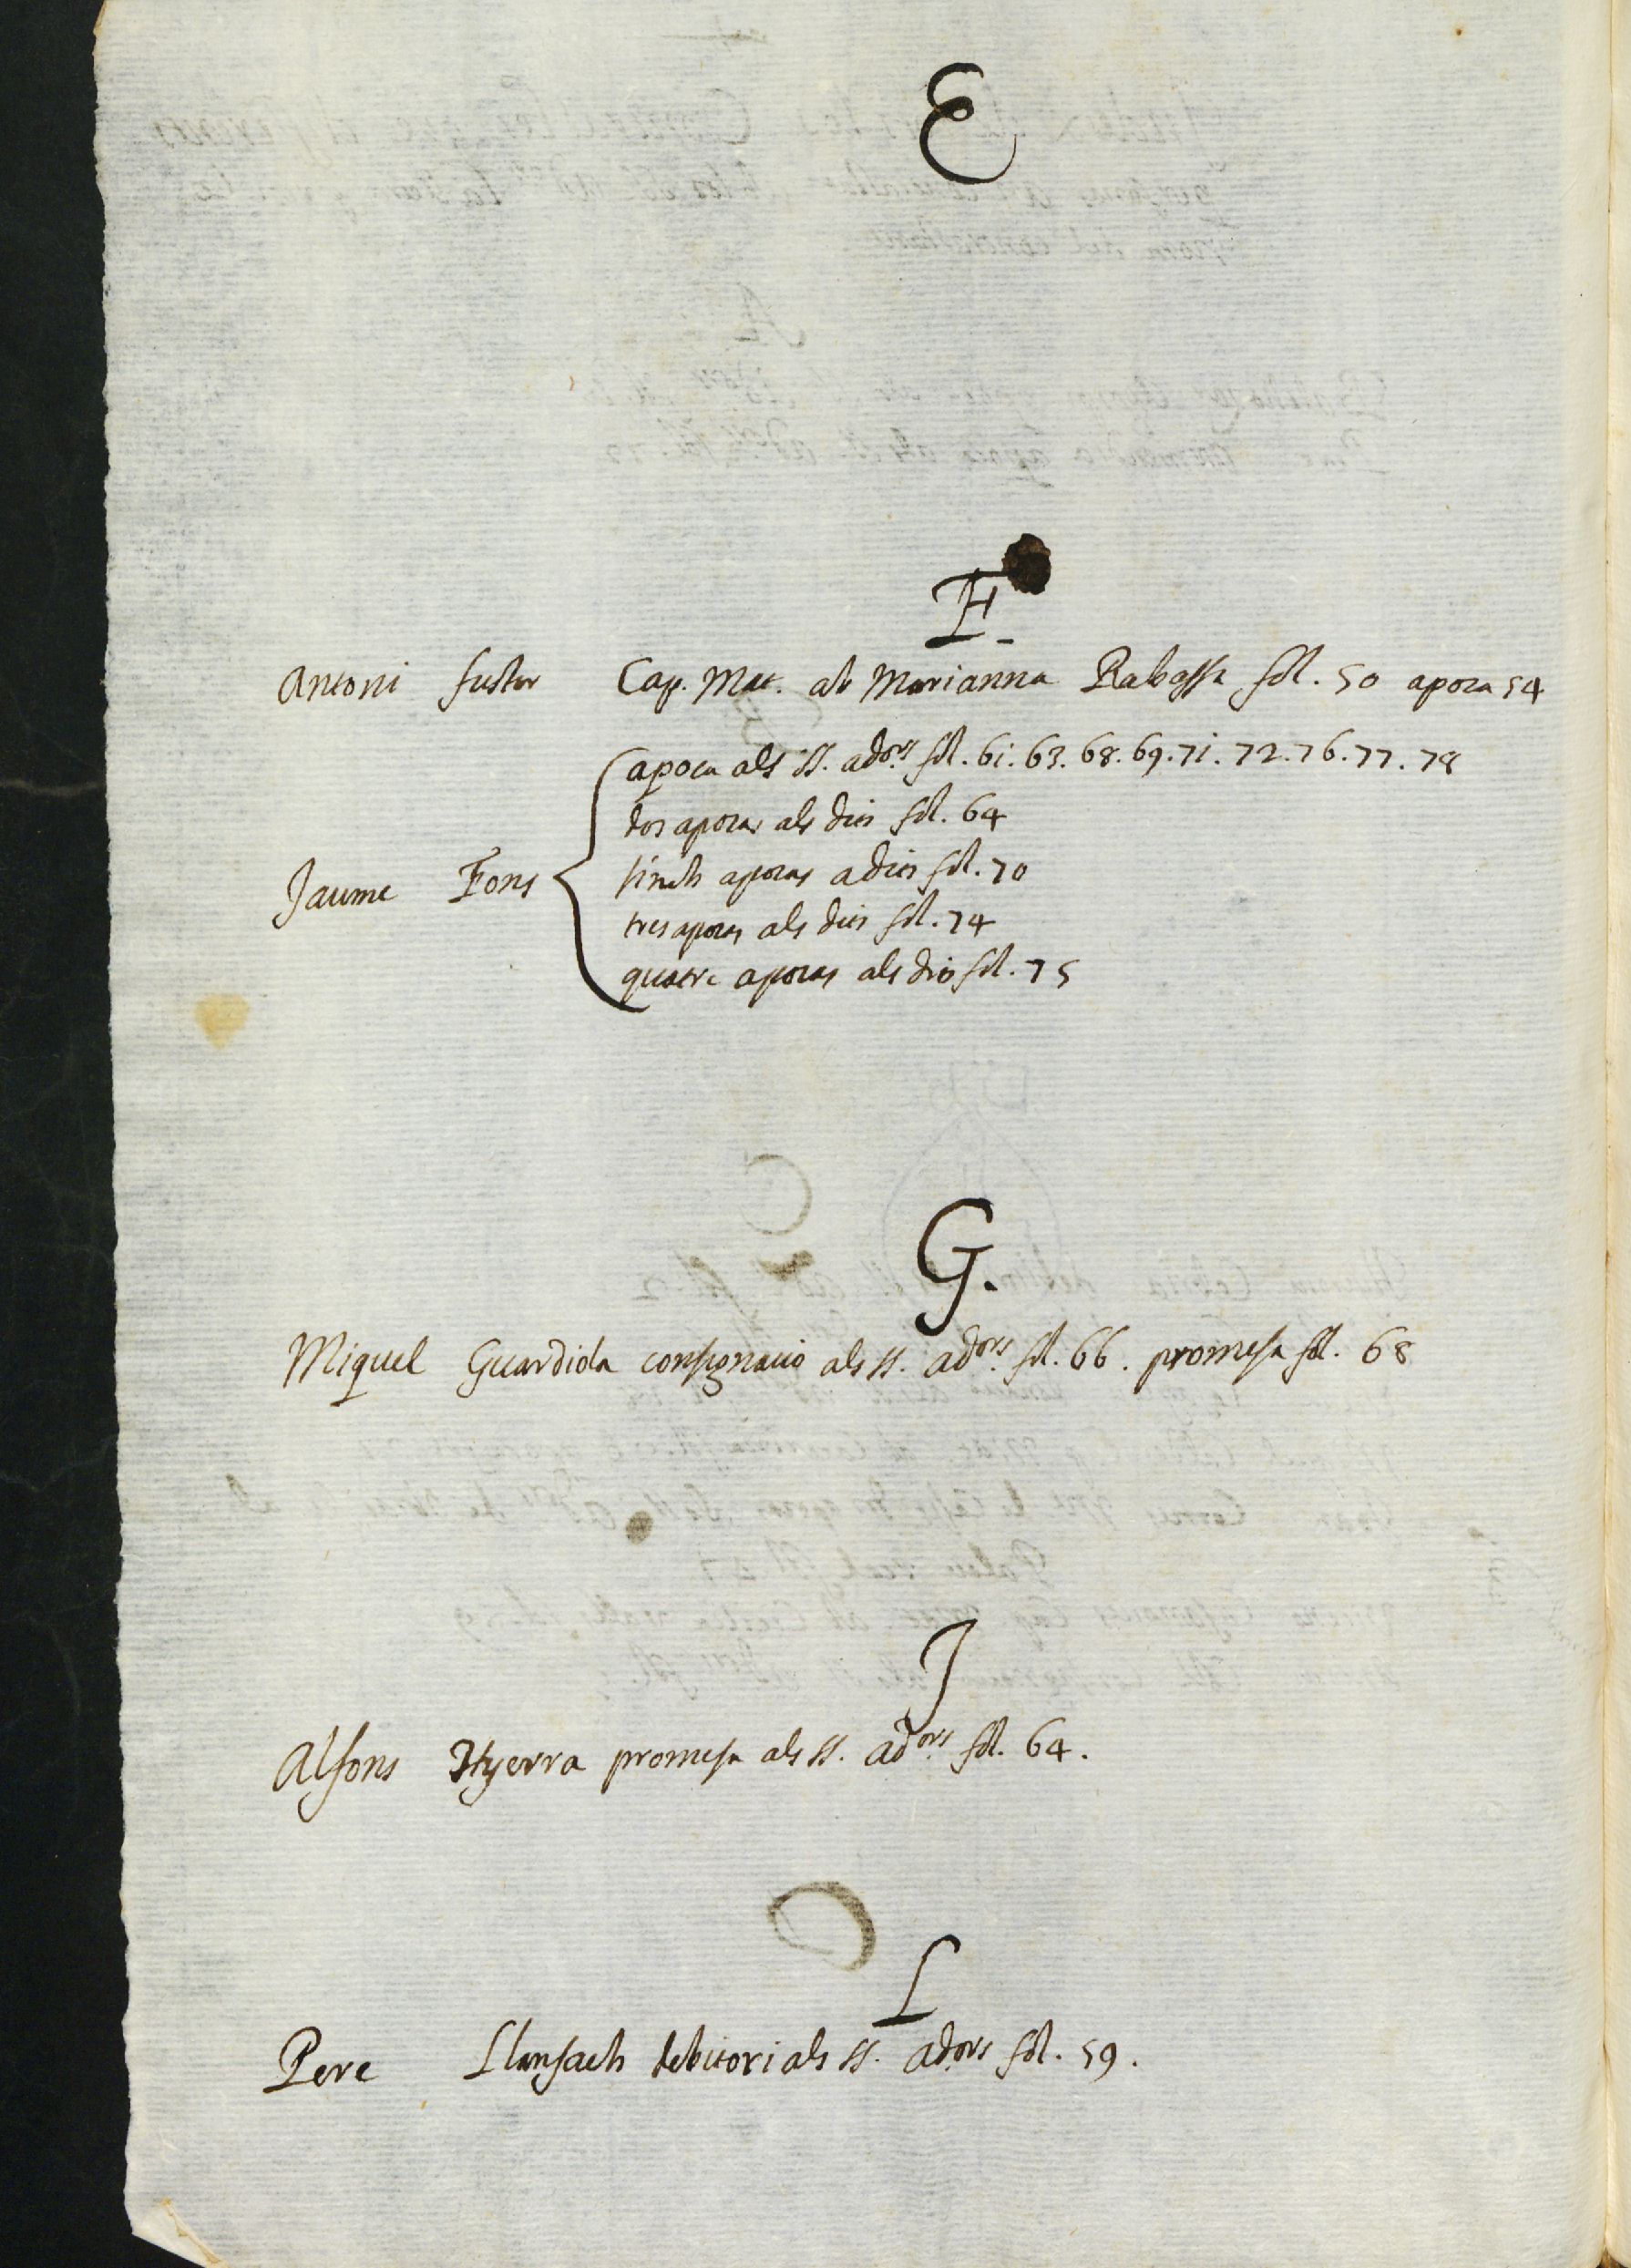 E
F.
Antoni fuster Cap. Mat. ab Marianna Rabassa fol. 50 apoca 54
apoca als ss. adors fol. 61. 63. 68. 69. 71. 72. 76. 77. 78
dos apocas als dits fol. 64
Jaume Fons sinch apocas a dits fol. 70
tres apocas als dits fol. 74
quatre apocas als dits fol. 75
G.
Miquel Guardiola consignacio als ss. adors fol. 66. promesa fol. 68
J
Alfons promesa als ss. adors fol. 64.
L
Pere Llansach debitori als ss. adors fol. 59.